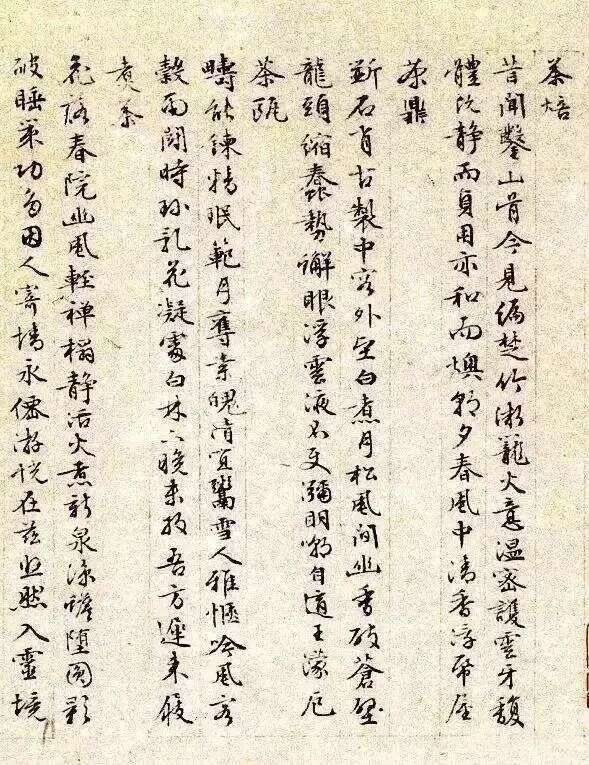 茶焙
昔聞鑿山骨今見編楚竹微籠火意溫密護雲牙馥
體既靜而貞用亦和而燠朝夕春風中清香浮紙屋
茶鼎
斲石肖古製中容外堅白煮月松風間幽香破蒼壁
龍頭縮蠢勢蟹眼浮雲液不使彌明嘲自適王濛厄
茶甌
疇能鍊精珉範月奪素魄清宜鬻雪人雅愜吟風客
穀雨鬥時珍乳花凝處白林下晚未收吾方遲來屐
煮茶
花落春院幽風輕禪榻靜活火煮新泉涼蟾墮圓影
破睡策功多因人寄情永僊游恍在茲悠然入靈境